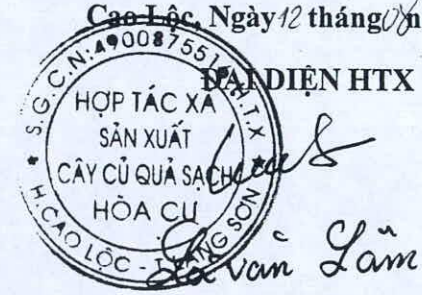 Cao Lộc, Ngày 12 tháng 08 n
ĐẠI DIỆN HTX
S.G.C.N: 4900875515 H.T.X
HỢP TÁC XÃ
SẢN XUẤT
CÂY CỦ QUẢ SẠCH
HÒA CƯ
H. CAO LỘC - T. LẠNG SƠN
Văn Lâm